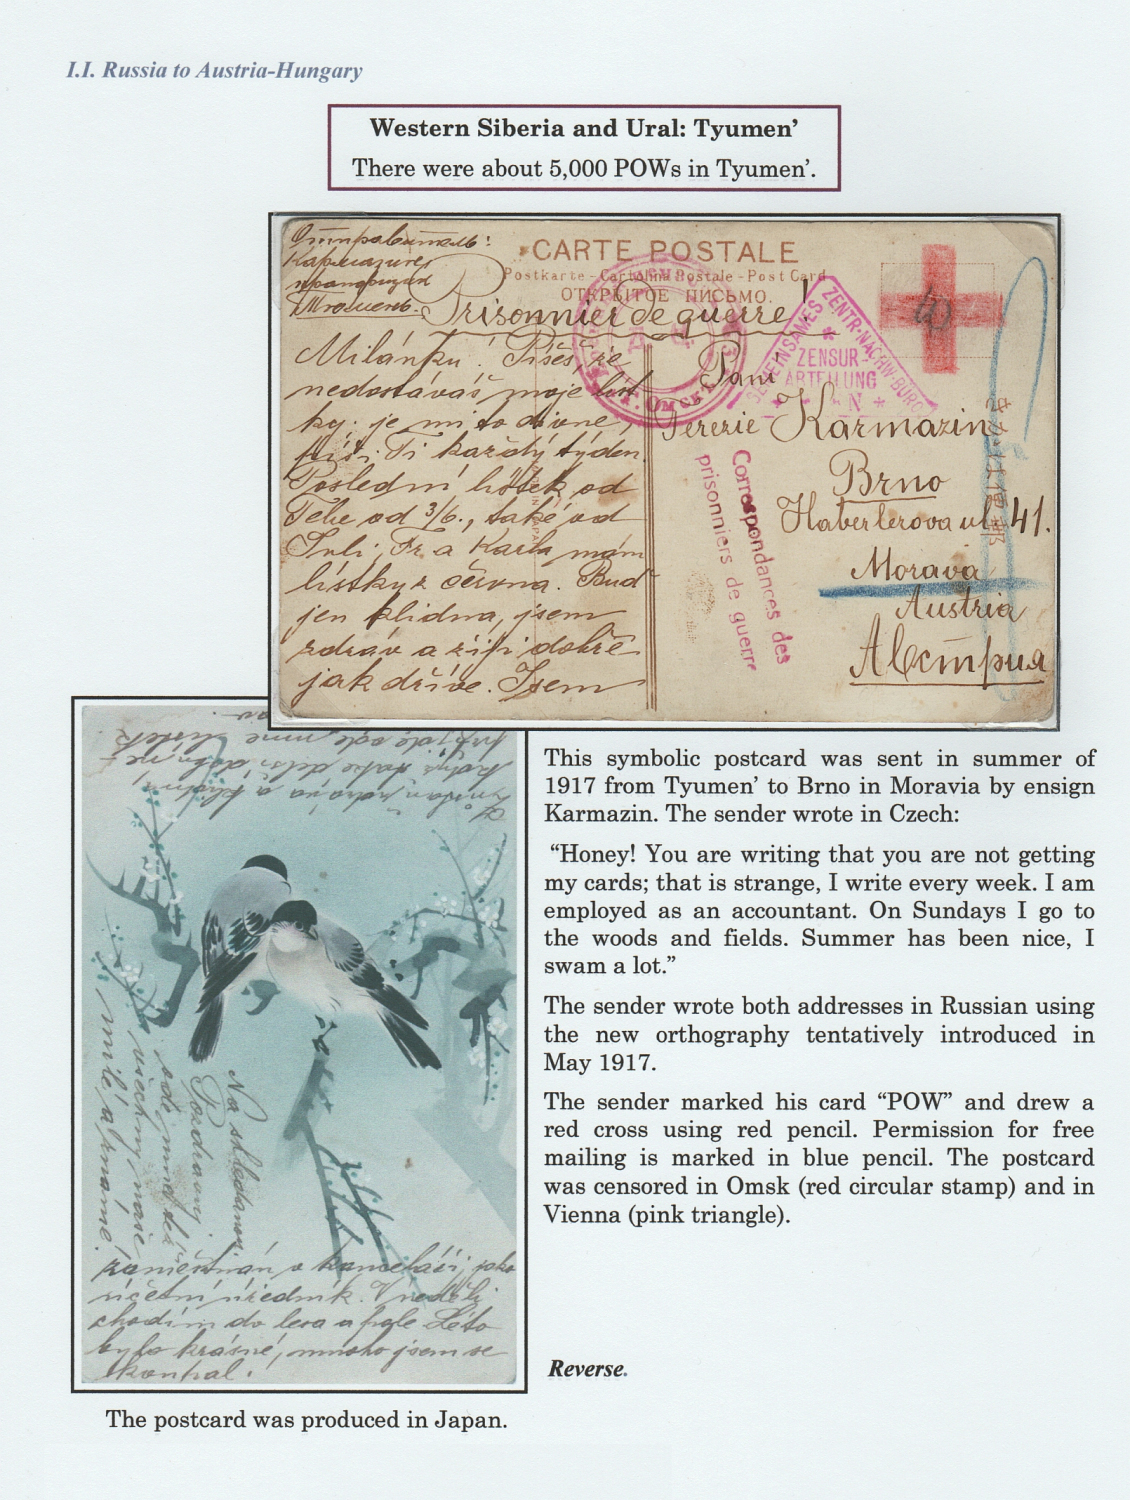 I.I. Russia to Austria-Hungary
Western Siberia and Ural: Tyumen’
There were about 5,000 POWs in Tyumen’.
Отправитель:
Кармазин
прапорщик
Тюмень.
CARTE POSTALE
Postkarte - Cartolina Postale - Post Card
ОТКРЫТОЕ ПИСЬМО.
Prisonnier de guerre!
Milánku! Píšeš, že
nedostáváš moje líst
ky; je mi to divné,
píši Ti každý týden.
Poslední lístek od
Tebe od 3/6., také od
Juli, Fr. a Karla mám
lístky z června. Buď
jen klidna, jsem
zdráv a žiji dobře
jak dříve. Jsem
Г. ОМСКЪ
GEMEINSAMES ZENTR-NACHW-BÜRO
ZENSUR-
ABTEILUNG
Correspondances des
prisonniers de guerre
Paní
Terezie Karmazin
Brno
Haberlerova ul. 41.
Morava
Austria
Австрия
zaměstnán v kanceláři, jako
účetní úředník. V neděli
chodím do lesa a pole. Léto
bylo krásné, mnoho jsem se
koupal.
Na shledanou
Pozdravuj
ode mne též
všechny naše
milé a známé.
This symbolic postcard was sent in summer of
1917 from Tyumen’ to Brno in Moravia by ensign
Karmazin. The sender wrote in Czech:
“Honey! You are writing that you are not getting
my cards; that is strange, I write every week. I am
employed as an accountant. On Sundays I go to
the woods and fields. Summer has been nice, I
swam a lot.”
The sender wrote both addresses in Russian using
the new orthography tentatively introduced in
May 1917.
The sender marked his card “POW” and drew a
red cross using red pencil. Permission for free
mailing is marked in blue pencil. The postcard
was censored in Omsk (red circular stamp) and in
Vienna (pink triangle).
Reverse.
The postcard was produced in Japan.